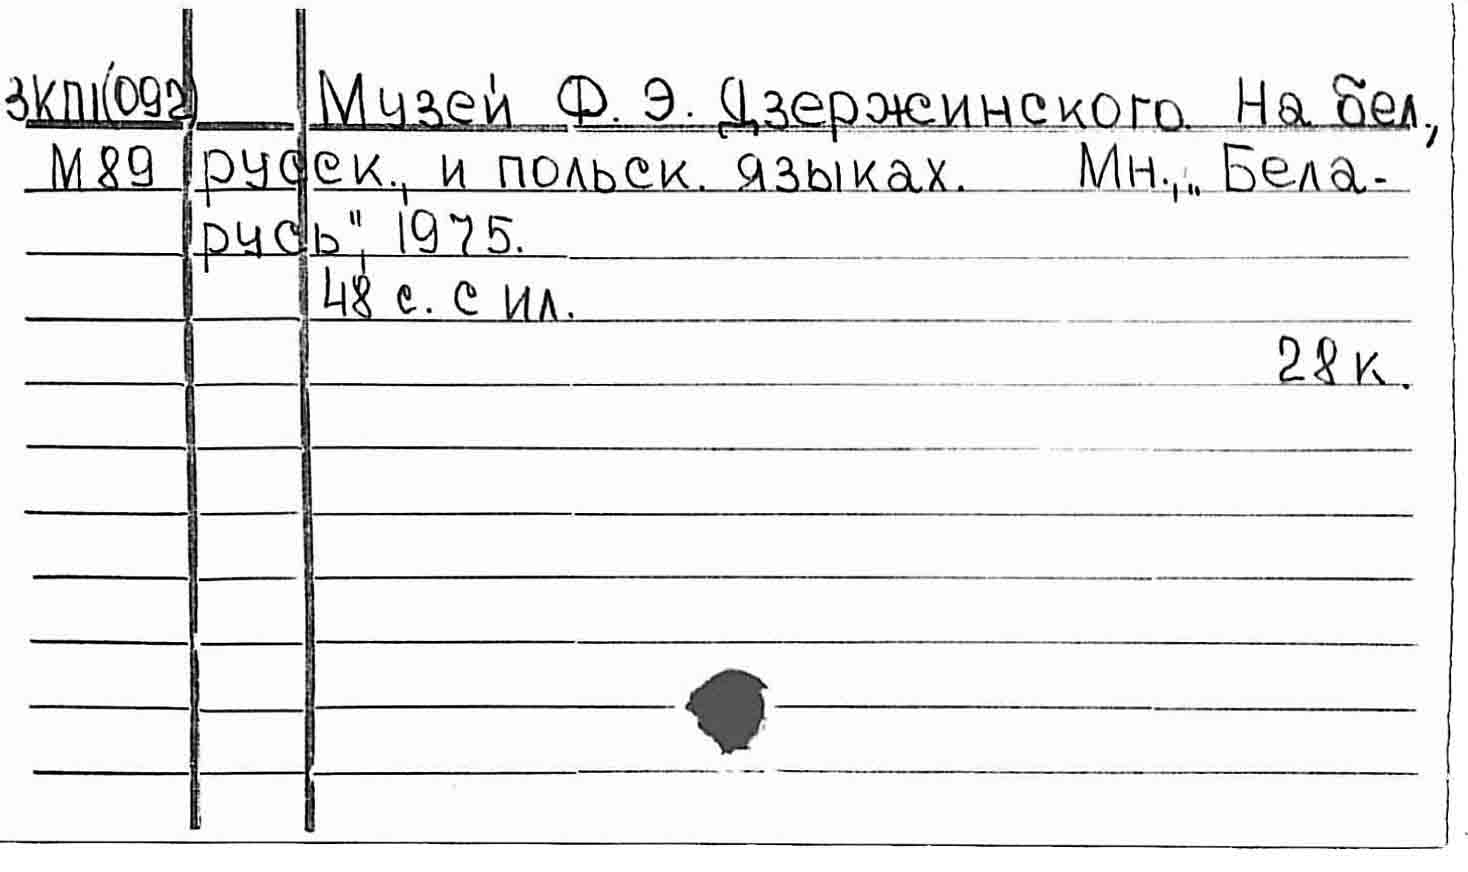 3КП1(092) Музей Ф. Э. Дзержинского. На бел.,
М89 русск., и польск. языках. Мн., „Бела-
русь", 1975.
48 с. с ил.
28 к.